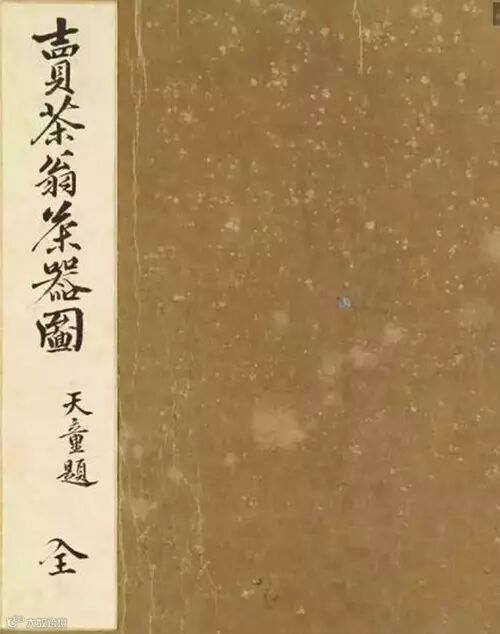 賣茶翁茶器圖
天童題
全